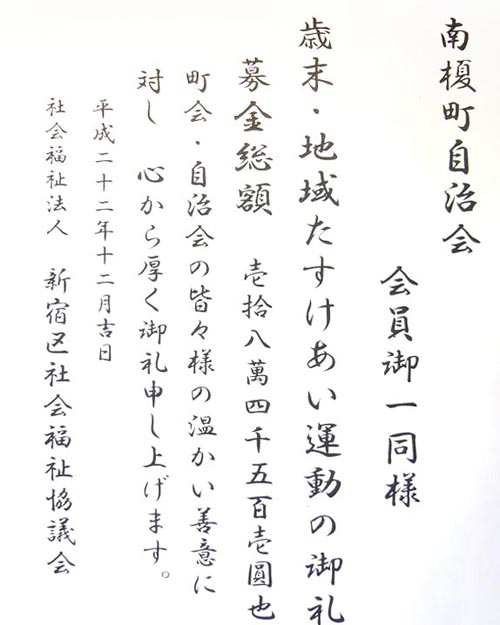 南榎町自治会
会員御一同様
歳末・地域たすけあい運動の御礼
募金総額 壱拾八萬四千五百壱圓也
町会・自治会の皆々様の温かい善意に
対し 心から厚く御礼申し上げます。
平成二十二年十二月吉日
社会福祉法人 新宿区社会福祉協議会